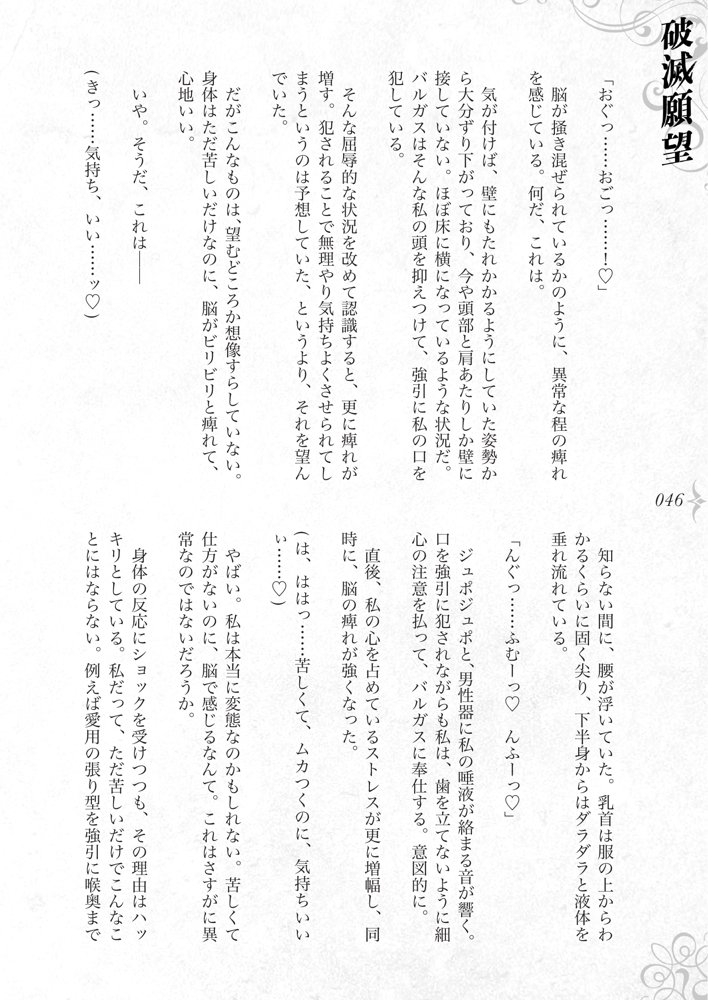 破滅願望
「おぐっ……おごっ……！♡」
脳が掻き混ぜられているかのように、異常な程の痺れ
を感じている。何だ、これは。
気が付けば、壁にもたれかかるようにしていた姿勢か
ら大分ずり下がっており、今や頭部と肩あたりしか壁に
接していない。ほぼ床に横になっているような状況だ。
バルガスはそんな私の頭を抑えつけて、強引に私の口を
犯している。
そんな屈辱的な状況を改めて認識すると、更に痺れが
増す。犯されることで無理やり気持ちよくさせられてし
まうというのは予想していた、というより、それを望ん
でいた。
だがこんなものは、望むどころか想像すらしていない。
身体はただ苦しいだけなのに、脳がビリビリと痺れて、
心地いい。
いや。そうだ、これは――
(きっ……気持ち、いい……ッ♡)
046
知らない間に、腰が浮いていた。乳首は服の上からわ
かるくらいに固く尖り、下半身からはダラダラと液体を
垂れ流れている。
「んぐっ……ふむーっ♡　んふーっ♡」
ジュポジュポと、男性器に私の唾液が絡まる音が響く。
口を強引に犯されながらも私は、歯を立てないように細
心の注意を払って、バルガスに奉仕する。意図的に。
直後、私の心を占めているストレスが更に増幅し、同
時に、脳の痺れが強くなった。
(は、ははっ……苦しくて、ムカつくのに、気持ちいい
ぃ……♡)
やばい。私は本当に変態なのかもしれない。苦しくて
仕方がないのに、脳で感じるなんて。これはさすがに異
常なのではないだろうか。
身体の反応にショックを受けつつも、その理由はハッ
キリとしている。私だって、ただ苦しいだけでこんなこ
とにはならない。例えば愛用の張り型を強引に喉奥まで